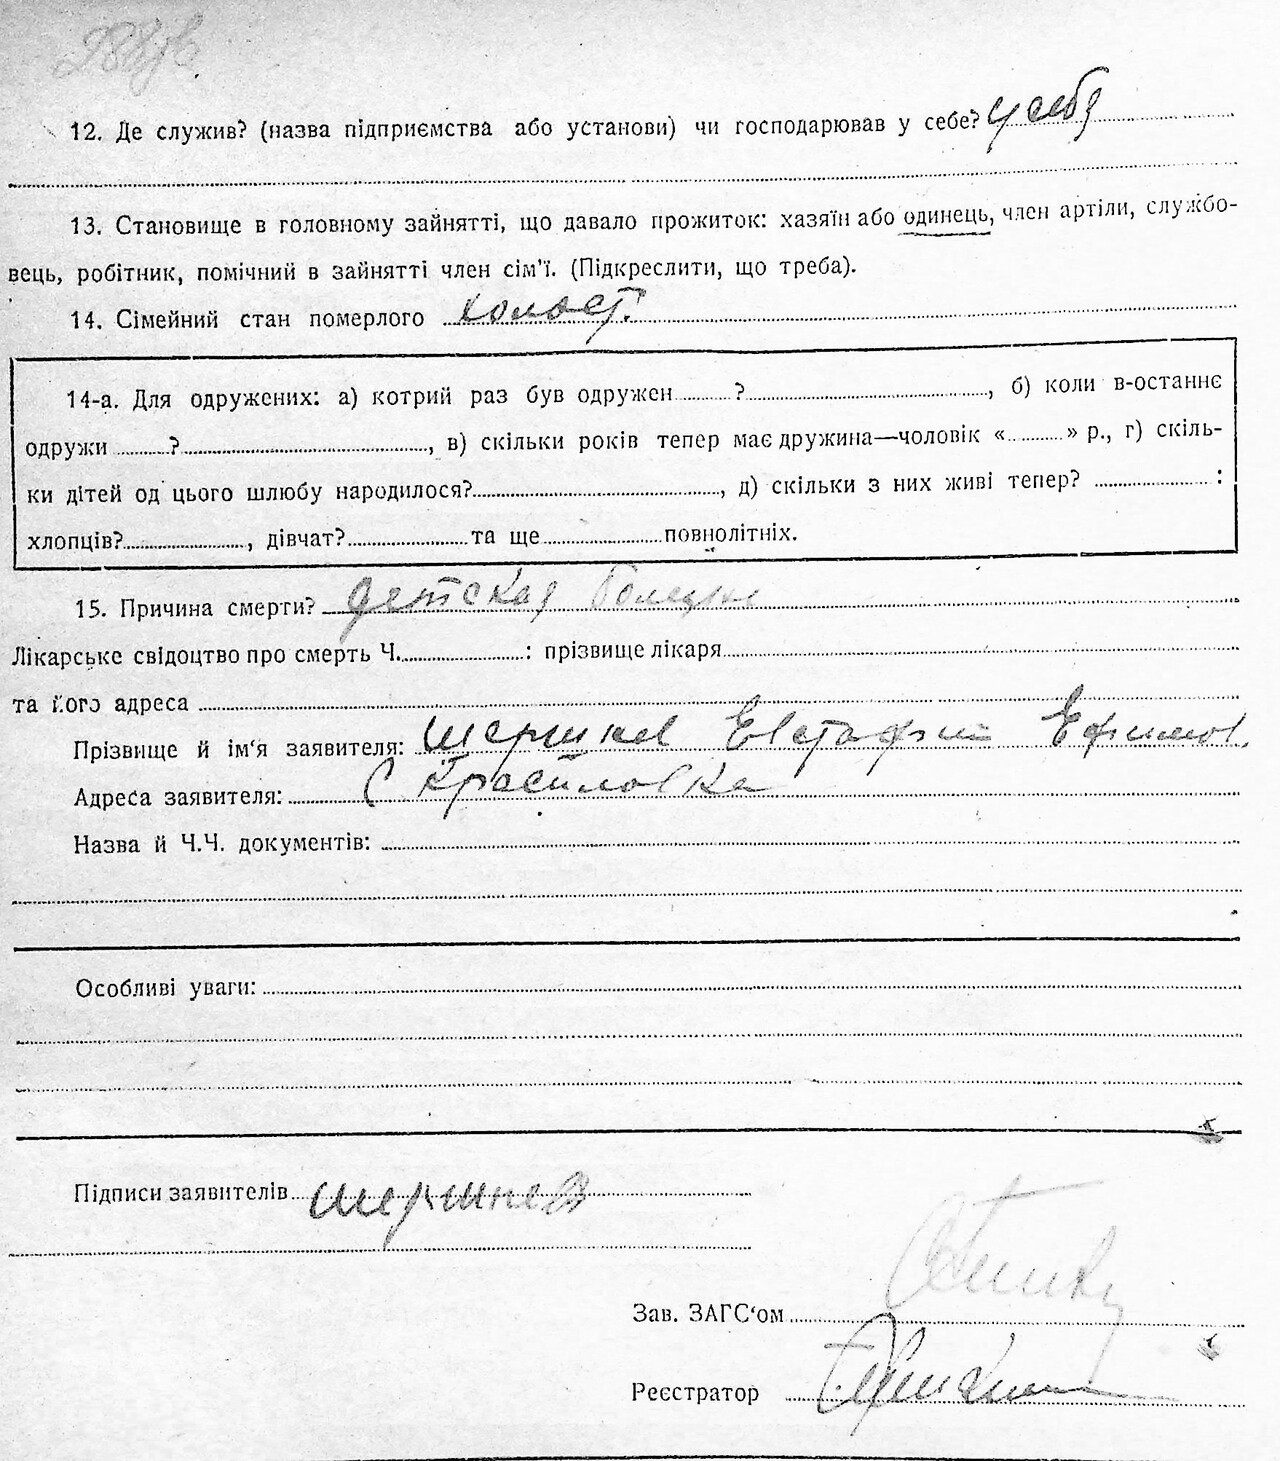 12. Де служив? (назва підприємства або установи) чи господарював у себе? у себя
13. Становище в головному зайнятті, що давало прожиток: хазяїн або одинець, член артіли, службо-
вець, робітник, помічний в зайнятті член сім'ї. (Підкреслити, що треба).
14. Сімейний стан померлого холост.
14-а. Для одружених: а) котрий раз був одружен ? , б) коли в-останнє
одружи ? , в) скільки років тепер має дружина—чоловік « » р., г) скіль-
ки дітей од цього шлюбу народилося? , д) скільки з них живі тепер? :
хлопців? , дівчат? та ще повнолітніх.
15. Причина смерти? детская болезнь
Лікарське свідоцтво про смерть Ч. : прізвище лікаря
та його адреса
Прізвище й ім'я заявителя: Шершнев Евстафий Ефимов.
Адреса заявителя: с Красиловка
Назва й Ч.Ч. документів:
Особливі уваги:
Підписи заявителів Шершнев
Зав. ЗАГС'ом
Реєстратор